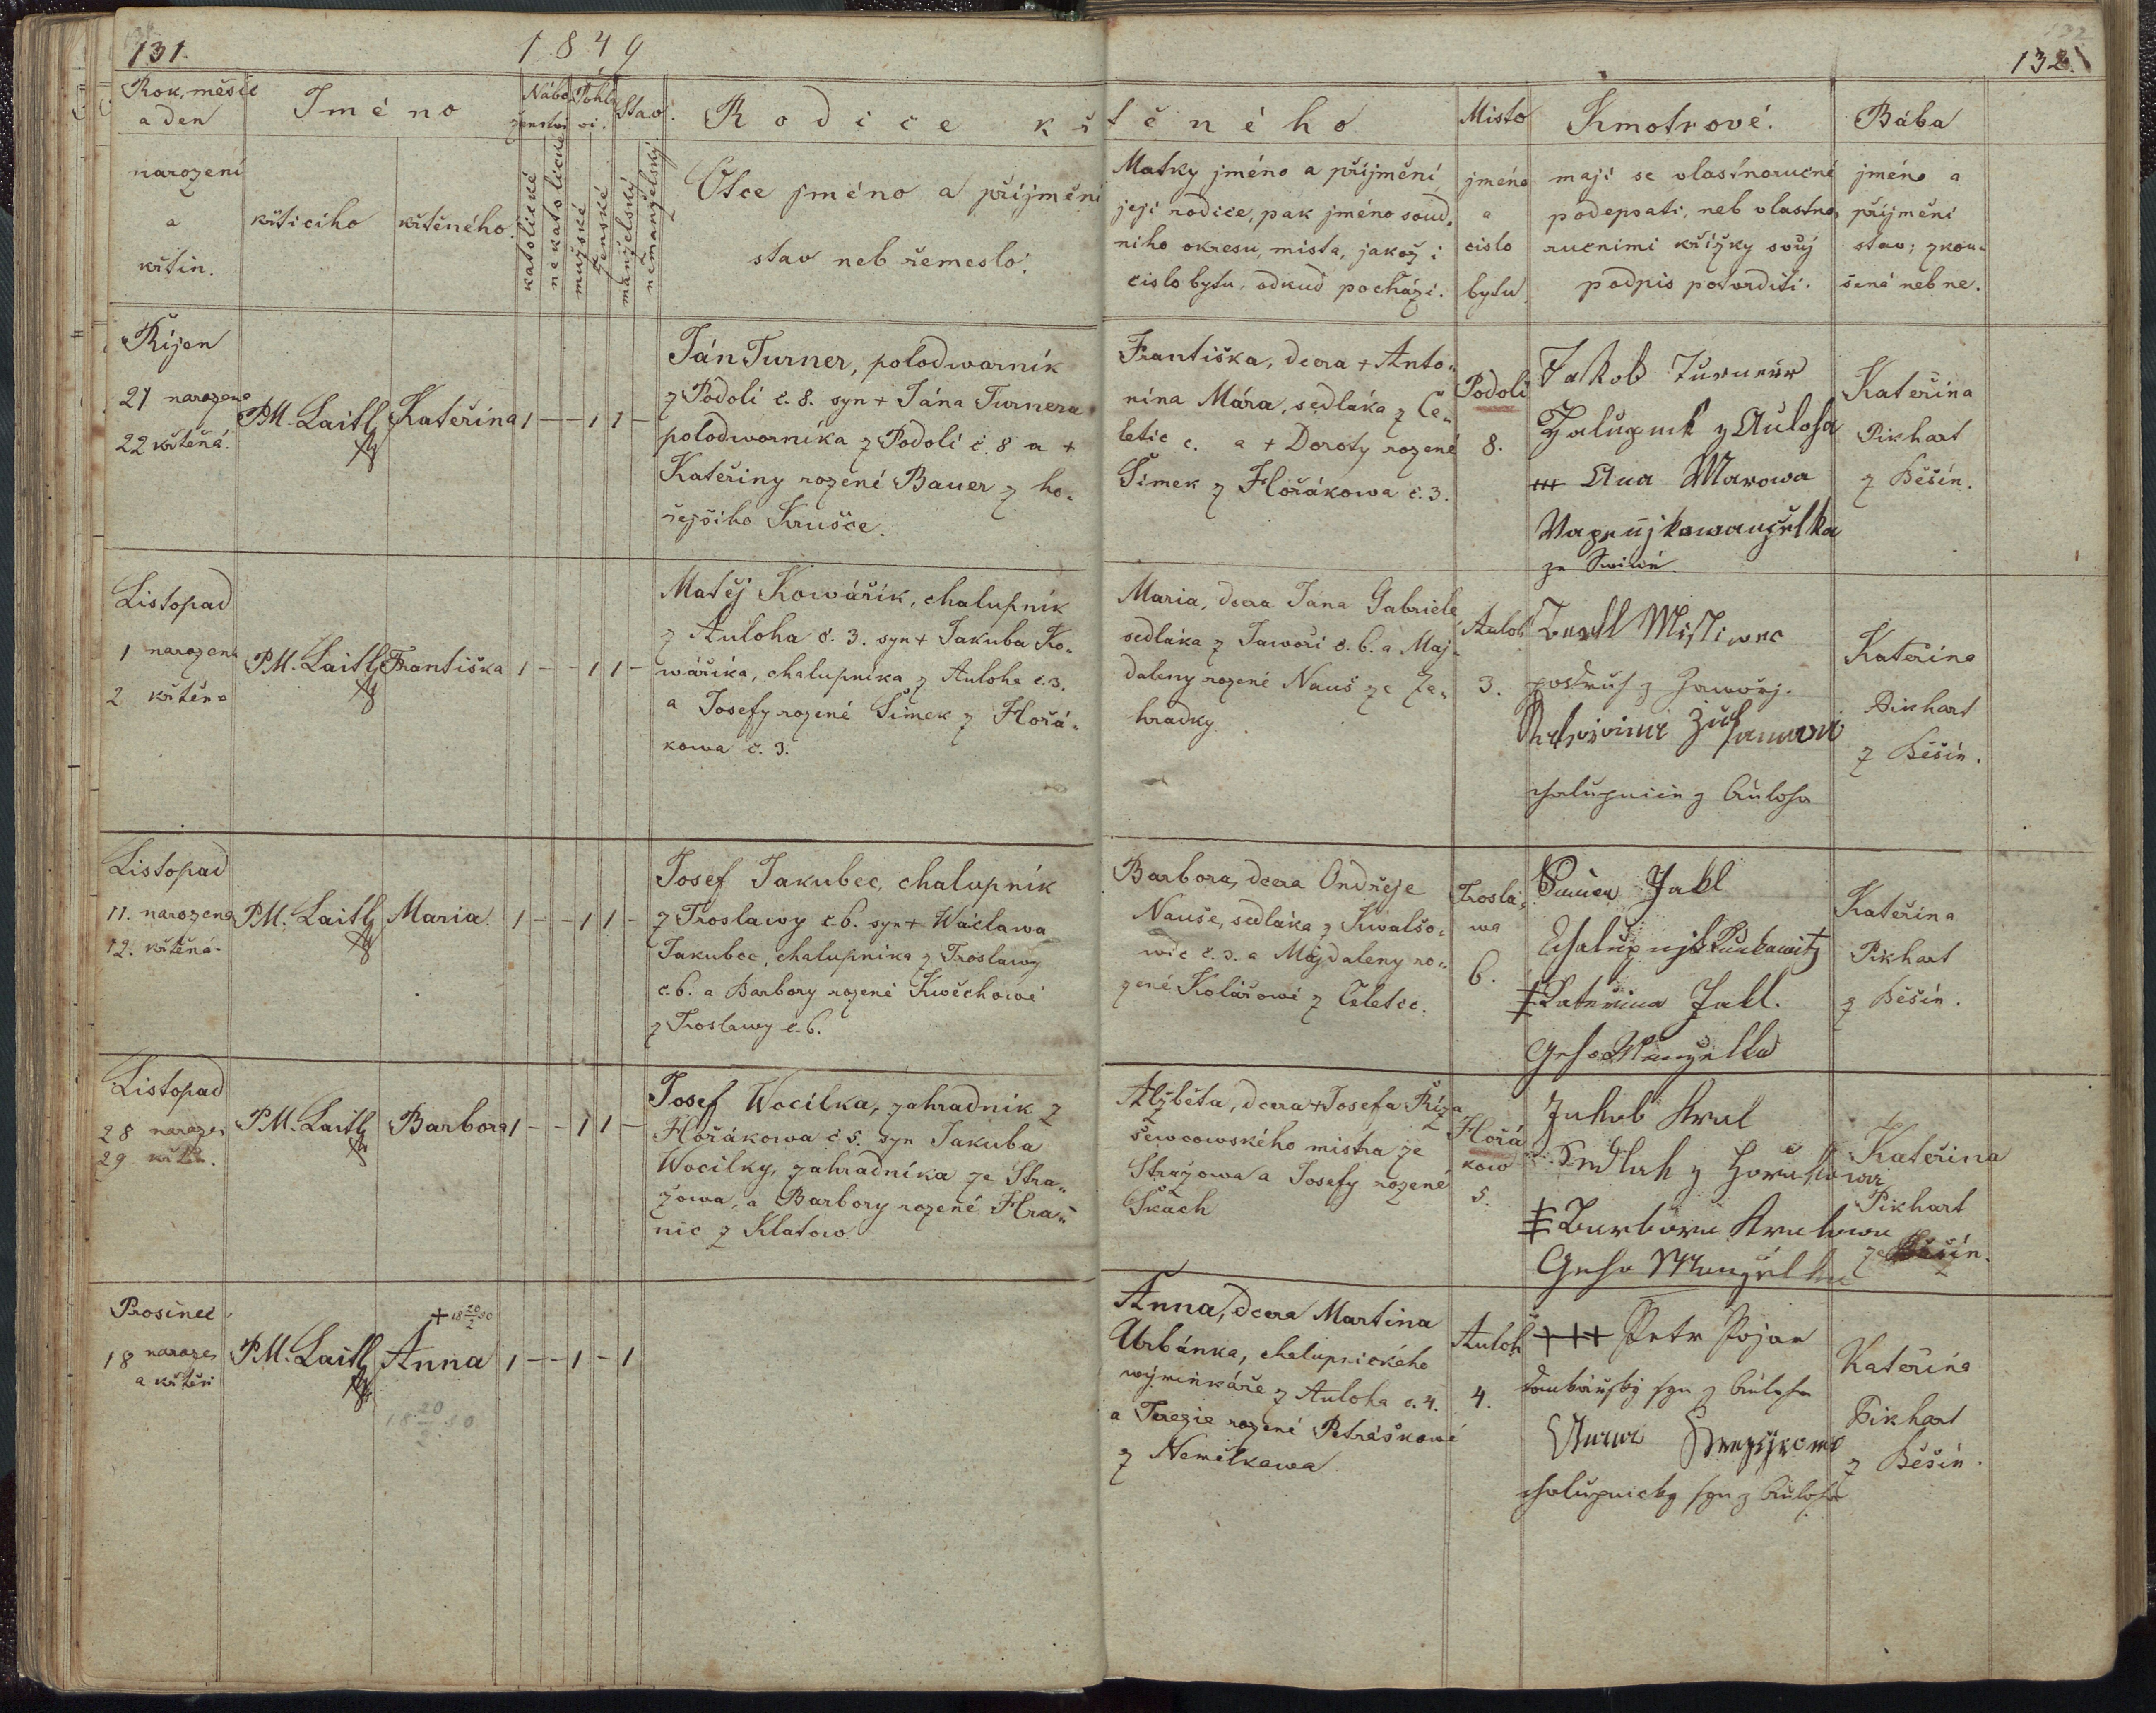 131.
1849
132.
Rok, měsíc
a den
narození
a
křtin.
Jméno
křticího
křtěného.
Nábo-
ženství
Pohla-
ví.
Stav.
katolické
nekatolické
mužské
ženské
manželský
nemanželský
Rodiče křtěného
Otce jméno a příjmění
stav neb řemeslo.
Matky jméno a příjmění,
její rodiče, pak jméno soud-
niho okresu, mista, jakož i
čislo bytu, odkud pochází.
Misto
jméno
a
čislo
bytu
Kmotrové.
mají se vlastnoručné
podepsati, neb vlastno-
ručnimi křížky svůj
podpis potvrditi.
Bába
jméno a
příjmění
stav; zkou-
šená neb ne.
Říjen
21 narozena
22 křtěná.
P.M. Laitl
Kateřina
1 — — 1 1 —
Ján Turner, polodwornik
z Podolí č. 8. syn + Jána Turnera
polodworníka z Podolí č. 8 a +
Kateřiny rozené Bauer z ho-
řejšího Krušce.
Františka, dcera + Anto-
nína Mára, sedláka z Če-
letic č. a + Doroty rozené
Šimek z Hořákowa č. 3.
Podolí
8.
Jakob Turner
Halupnik z Auloha
+++ Ana Marowa
manželka
ze
Kateřina
Pikhart
z Běšin.
Listopad
1 narozena
2 křtěna
P.M. Laitl
Františka
1 — — 1 1 —
Matěj Kowářík, chalupník
z Auloha č. 3. syn + Jakuba Ko-
wáříka, chalupníka z Auloha č. 3.
a Josefy rozené Šimek z Hořá-
kowa č. 3.
Maria, dcera Jana Gabriele
sedláka z Jawoří č. 6. a Maj-
daleny rozené Nauš ze Za-
hradky.
Auloh
3.
Mistiwec
podruh z Jaworj.
chalupnice z Auloha
Kateřina
Pikhart
z Běšin.
Listopad
11. narozena
12. křtěná.
P.M. Laitl
Maria.
1 — — 1 1 —
Josef Jakubec, chalupník
z Troslawy č. 6. syn + Wáclawa
Jakubec, chalupníka z Troslawy
č. 6. a Barbory rozené Kwěchowé
z Troslawy č. 6.
Barbora, dcera Ondřeje
Nauše, sedláka z Kwalšo-
wic č. 3. a Majdaleny ro-
zené Kolářowé z Čeletic.
Trosla-
wa
6.
Jakl
Chalupnjk
Katerina Jakl.
Geho Manzelka
Kateřina
Pikhart
z Běšin.
Listopad
28 naroze.
29 křtěn.
P.M. Laitl
Barbora
1 — — 1 1 —
Josef Wocilka, zahradník z
Hořákowa č. 5. syn Jakuba
Wocilky, zahradníka ze Stra-
žowa, a Barbory rozené Hra-
nic z Klatow.
Alžběta, dcera + Josefa Říza
šewcowského mistra ze
Stražowa a Josefy rozené
Škach
Hořá
kow
5.
Jakob Kral
Sedlak z Horakowa
Barbora Kralowa
Geho Manzelka
Kateřina
Pikhart
ze Běšin.
Prosinec
18 naroze.
a křtěn
P.M. Laitl
+ 18 20/2 50
Anna
18 20/2 50
1 — — 1 — 1
Anna, dcera Martina
Urbánka, chalupnického
wýminkáře z Auloha č. 4.
a Terezie rozené Petráškowé
z Nemělkowa
Auloh
4.
+++ Petr Pojar
syn z Auloha
Anna
chalupnicky syn z Auloha
Kateřina
Pikhart
z Běšin.